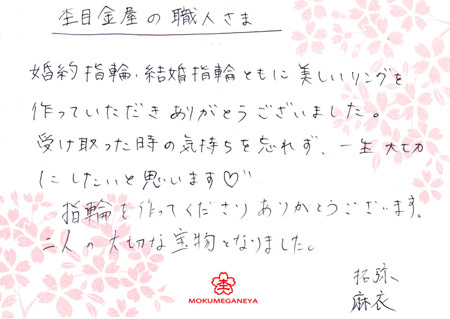 杢目金屋の職人さま
婚約指輪・結婚指輪ともに美しいリングを
作っていただきありがとうございました。
受け取った時の気持ちを忘れず、一生大切
にしたいと思います♡"
指輪を作ってくださりありがとうございます。
二人の大切な宝物となりました。
MOKUMEGANEYA
拓弥
麻衣